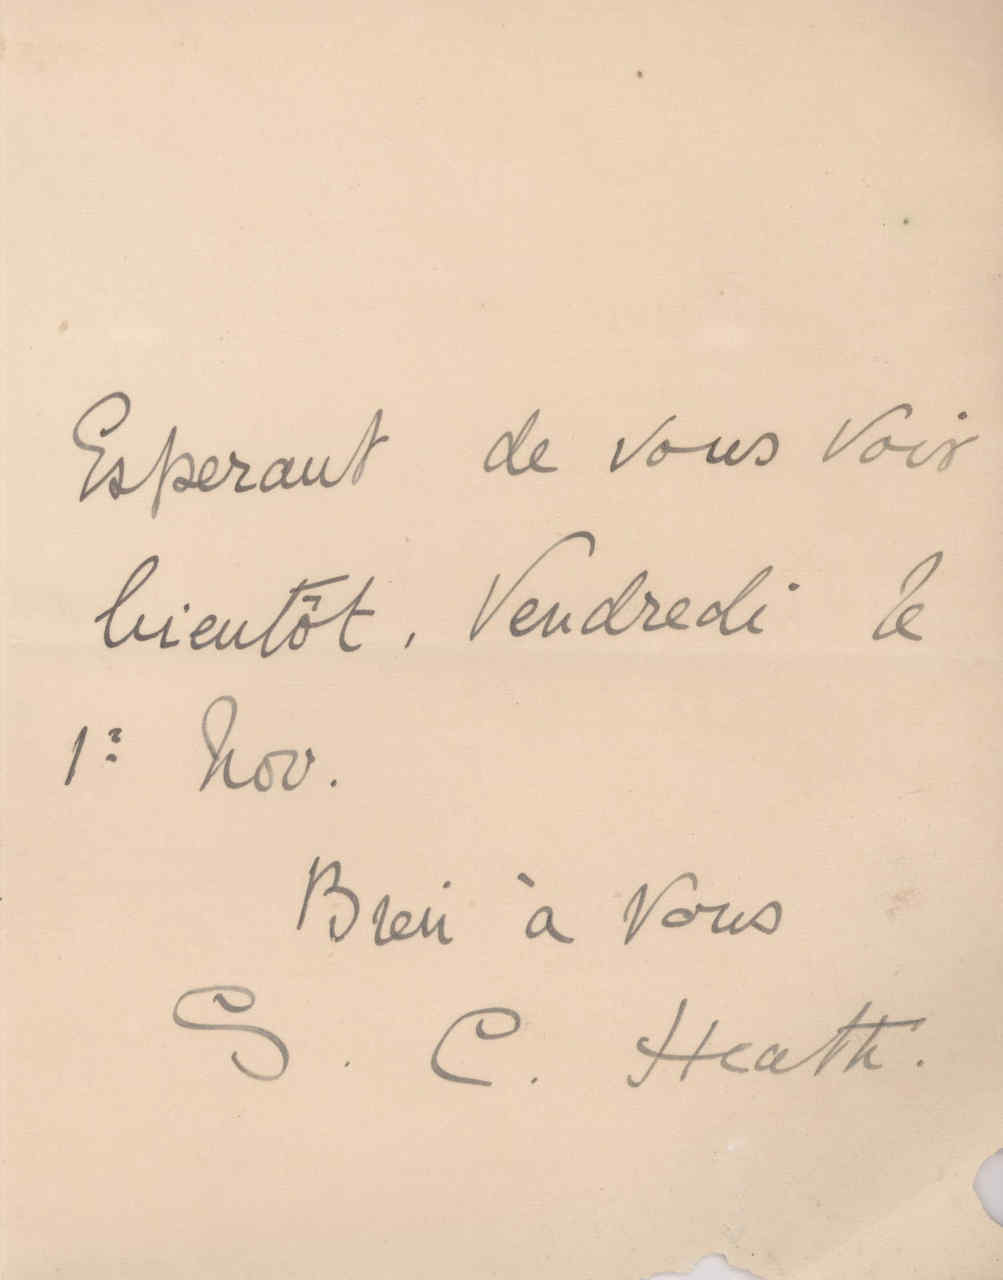 Esperant de vous voir
bientôt, Vendredi le
1r Nov.
Bien à vous
S. C. Heath.